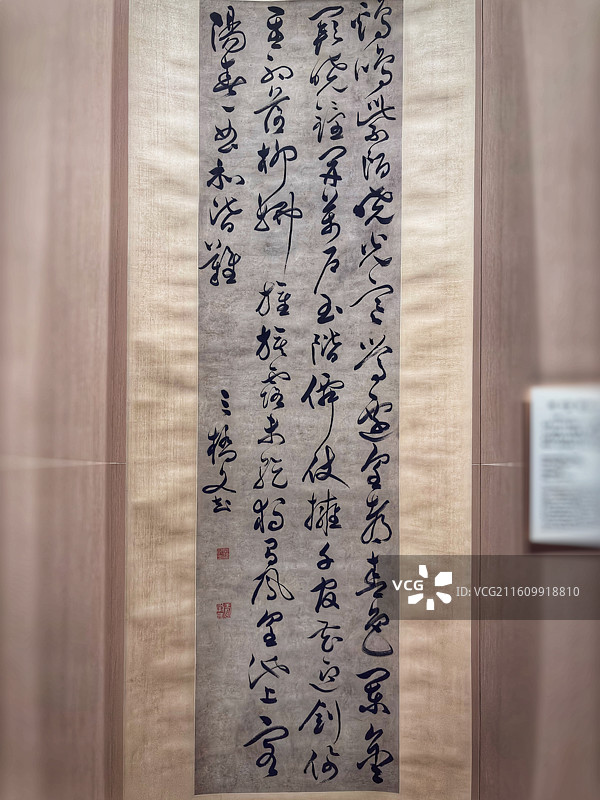 鷄鳴紫陌曉光寒鶯囀皇都春色闌金
闕曉鐘開萬户玉階僊仗擁千官花迎劍佩
星初落柳拂旌旗露未乾獨有鳳皇池上客
陽春一曲和皆難
三橋文彭
VCG
ID: VCG211609918810